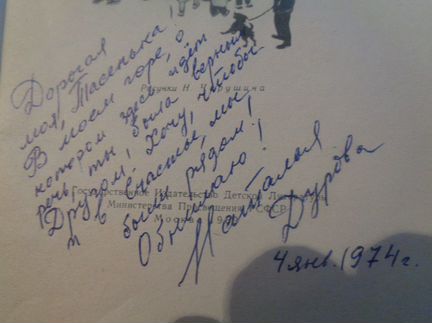 Дорогая
моя, Тасенька!
В моем горе, о
котором здесь идет
речь ты была верным
Другом! Хочу, чтобы
и в счастье, мы
были рядом!
Обнимаю!
Наталья
Дурова
4 янв. 1974 г.
Рисунки Н.
Государственное Издательство Детской
Министерства Просвещения РСФСР
Москва